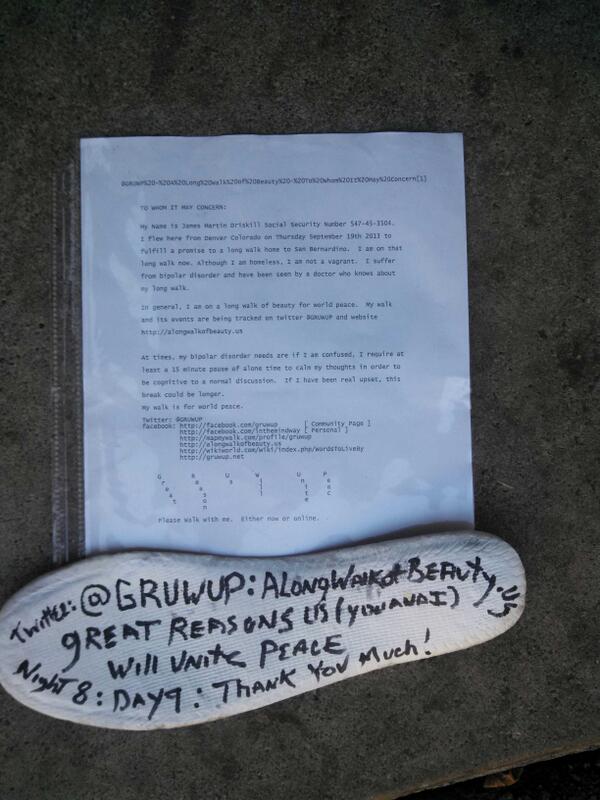 @GRUWUP%20-%20A%20Long%20Walk%20of%20Beauty%20-%20To%20Whom%20It%20May%20Concern[1]
TO WHOM IT MAY CONCERN:
My Name is James Martin Driskill Social Security Number [redacted].
I flew here from Denver Colorado on Thursday September 19th 2013 to
fulfill a promise to a long walk home to San Bernardino. I am on that
long walk now. Although I am homeless, I am not a vagrant. I suffer
from bipolar disorder and have been seen by a doctor who knows about
my long walk.
In general, I am on a long walk of beauty for world peace. My walk
and its events are being tracked on twitter @GRUWUP and website
http://alongwalkofbeauty.us
At times, my bipolar disorder needs are if I am confused, I require at
least a 15 minute pause of alone time to calm my thoughts in order to
be cognitive to a normal discussion. If I have been real upset, this
break could be longer.
My walk is for world peace.
Twitter: @GRUWUP
facebook: http://facebook.com/gruwup [ Community Page ]
http://facebook.com/inthemindway [ Personal ]
http://mapmywalk.com/profile/gruwup
http://alongwalkofbeauty.us
http://wikiworld.com/wiki/index.php/WordsToLiveBy
http://gruwup.net
Great Reason Us Will Unite Peac
Please walk with me. Either now or online.
Twitter: @GRUWUP: ALongWalkofBEAUTY.US
GREAT REASONS US (YOU AND I)
WILL UNITE PEACE
Night 8: DAY9: THANK YOU MUCH!